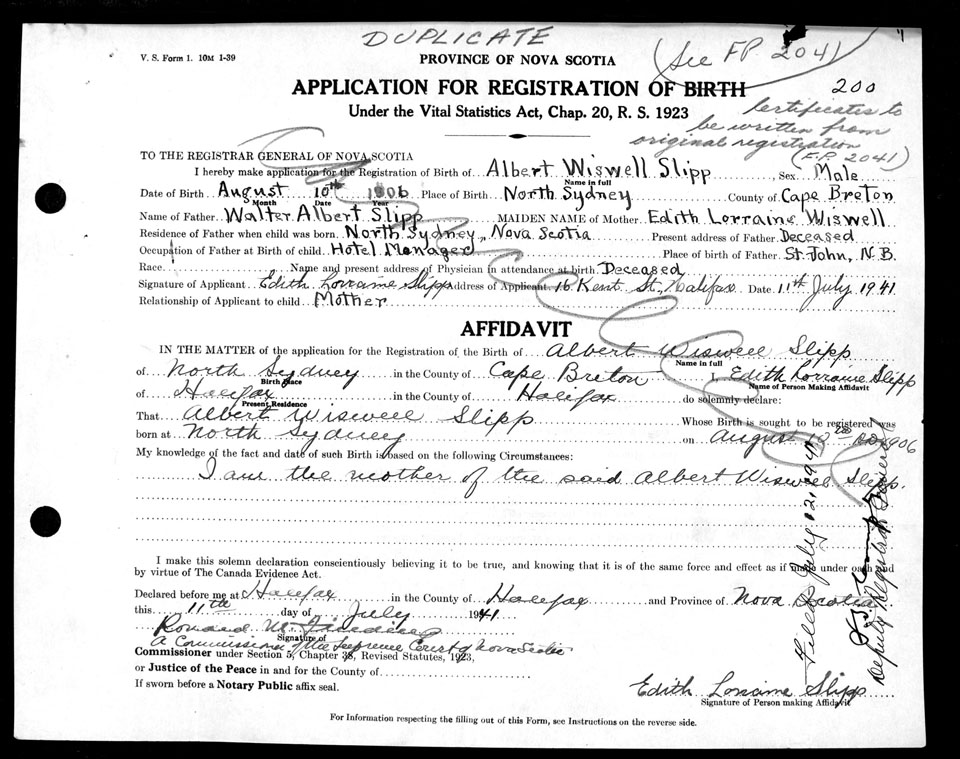 DUPLICATE
(See F.P. 2041)
V. S. Form 1. 10M 1-39
PROVINCE OF NOVA SCOTIA
APPLICATION FOR REGISTRATION OF BIRTH
200
Under the Vital Statistics Act, Chap. 20, R. S. 1923
Certificates to
be written from
original registration
(F.P. 2041)
TO THE REGISTRAR GENERAL OF NOVA SCOTIA
I hereby make application for the Registration of Birth of Albert Wiswell Slipp Sex Male
Name in full
Date of Birth August 10th 1906 Place of Birth North Sydney County of Cape Breton
Month Date Year
Name of Father Walter Albert Slipp MAIDEN NAME of Mother Edith Lorraine Wiswell
Residence of Father when child was born. North Sydney, Nova Scotia Present address of Father Deceased
Occupation of Father at Birth of child. Hotel Manager Place of birth of Father St. John, N.B.
Race Name and present address of Physician in attendance at birth. Deceased
Signature of Applicant Edith Lorraine Slipp Address of Applicant 16 Kent St., Halifax Date 11th July 1941
Relationship of Applicant to child Mother
Cancelled
AFFIDAVIT
IN THE MATTER of the application for the Registration of the Birth of Albert Wiswell Slipp
Name in full
of North Sydney in the County of Cape Breton I, Edith Lorraine Slipp
Birth Place Name of Person Making Affidavit
of Halifax in the County of Halifax do solemnly declare:
Present Residence
That Albert Wiswell Slipp Whose Birth is sought to be registered was
born at North Sydney on August 10th A.D. 1906
My knowledge of the fact and date of such Birth is based on the following Circumstances:
I am the mother of the said Albert Wiswell Slipp.
I make this solemn declaration conscientiously believing it to be true, and knowing that it is of the same force and effect as if made under oath and
by virtue of The Canada Evidence Act.
Declared before me at Halifax in the County of Halifax and Province of Nova Scotia
this 11th day of July 1941
Ronald M.
Signature of
A Commissioner of the Supreme Court of Nova Scotia
Commissioner under Section 5, Chapter 38, Revised Statutes, 1923,
or Justice of the Peace in and for the County of
If sworn before a Notary Public affix seal.
Edith Lorraine Slipp
Signature of Person making Affidavit
Filed July 12, 1941
Deputy Registrar General
For Information respecting the filling out of this Form, see Instructions on the reverse side.